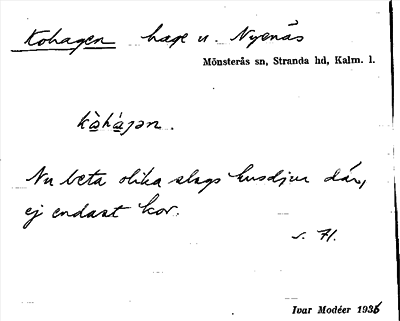 Kohagen hage u. Nyenäs
Mönsterås sn, Stranda hd, Kalm. l.
kò̲há̲ɡən.
Nu beta olika slags husdjur där,
ej endast kor.
s. 71.
Ivar Modéer 1936